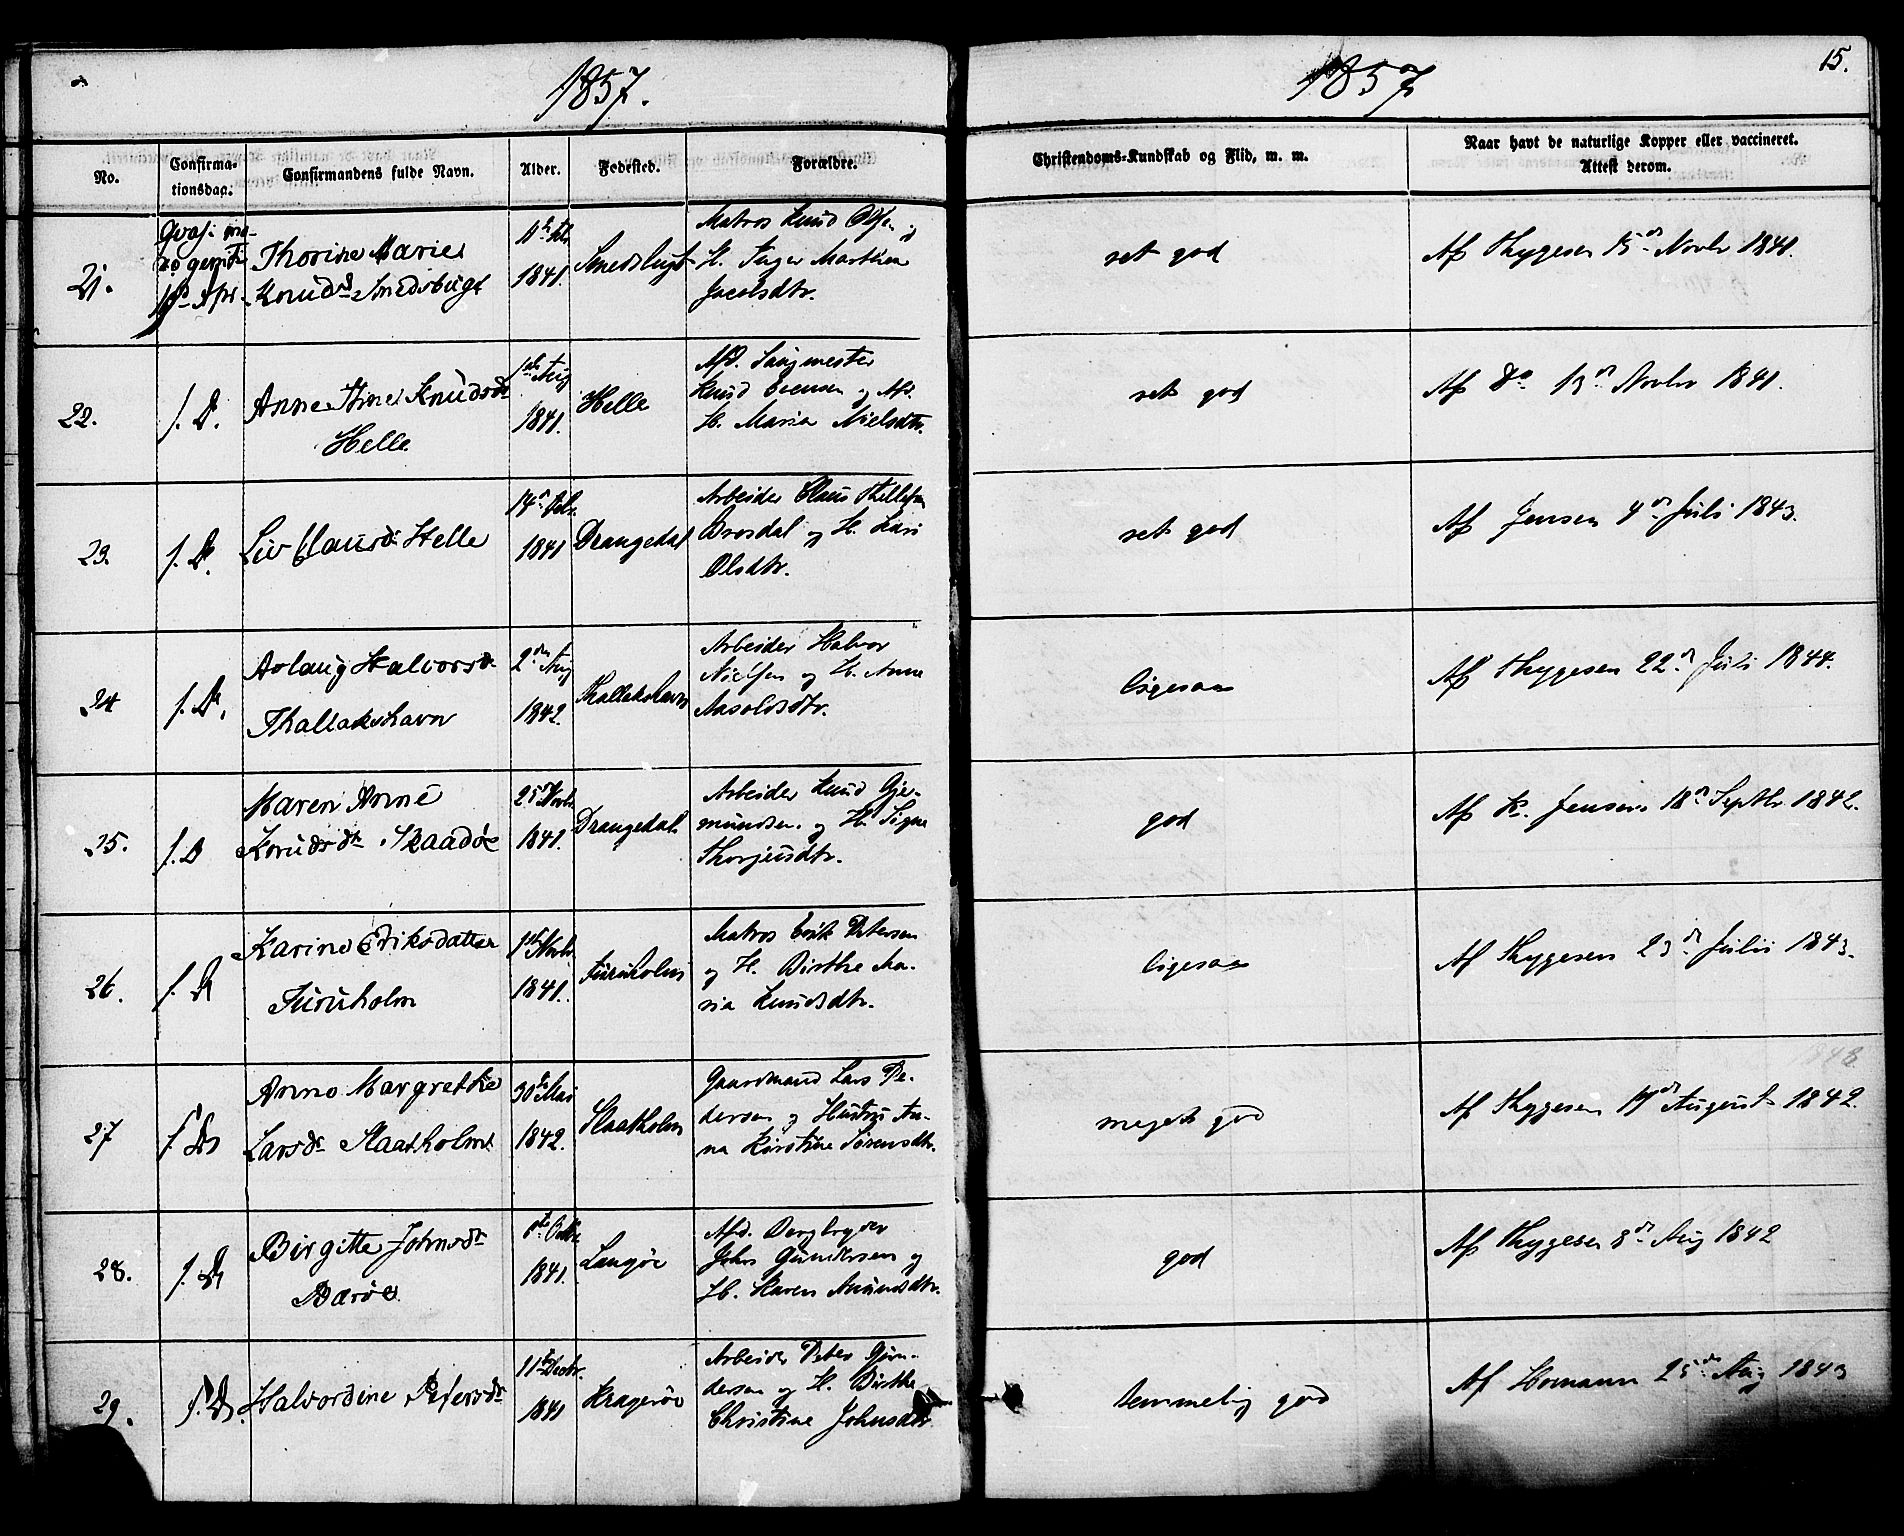 1857.
1857
15.
No.
Confirma-
tionsdag.
Confirmandens fulde Navn.
Alder.
Fødested.
Forældre.
Christendoms-Kundskab og Flid, m. m.
Naar havt de naturlige Kopper eller vaccineret.
Attest derom.
21.
Thorine Marie
Knudsd Smedsbugt
1841.
Smedsbugt
Matros Knud Olsen og
H. Inger Marthea
Jacobsdtr.
ret god
Af Thygesen 15de Novbr 1841.
22.
f. D.
Anne Thine Knudsdr
Helle
1ste Aug
1841.
Helle
Afd. Saugmester
Knud Evensen og Afd.
H. Maria Nielsdtr.
ret god
Af Do 13de Novbr 1841.
23.
f. D.
Liv Clausdr Helle
14de
1841
Drangedal
Arbeider Claus Thellefsen
Brosdal og H. Kari
Olsdtr.
ret god
Af Jensen 4de Juli 1843.
24
f. D.
Aslaug Halvorsdr
Thallakshavn
2den Aug
1842.
Thallakshavn
Arbeider Halvor
Nielsen og H. Anne
Aasoldsdtr.
ligesaa
Af Thygesen 22de Juli 1844.
25.
f. D
Maren Anne
Knudsdtr Skaadøe
25 Novbr
1841.
Drangedal.
Arbeider Knud Gjer-
mundsen og H. Signe
Thorjusdtr.
god
Af K. Jensen 18de Septbr 1842.
26.
f. D
Karine Eriksdatter
Furuholm
1ste Novbr
1841.
Furuholm
Matros Erik Petersen
og H. Birthe Ma-
ria Knudsdtr.
ligesaa
Af Thygesen 23de Juli 1843.
27
f. D
Anne Margrethe
Larsdr Slaatholm
30te Mai
1842.
Slaatholm
Gaardmand Lars Pe-
dersen og Hustru An-
na Kirstine Sørensdtr.
meget god
Af Thygesen 17de August 1842.
28.
f. D
Birgitte Johnsdr
Barøe
1841.
Langøe
Afd. Bergbryder
John Gundersen og
H. Karen Amundsdtr.
god
Af Thygesen 8de Aug 1842
29.
f. D.
Halvordine Petersdr
11te Decbr.
1841
Kragerøe
Arbeider Peter Gun-
dersen og H. Birthe
Christine Johnsdtr
temmelig god
Af Homann 25de Aug 1843